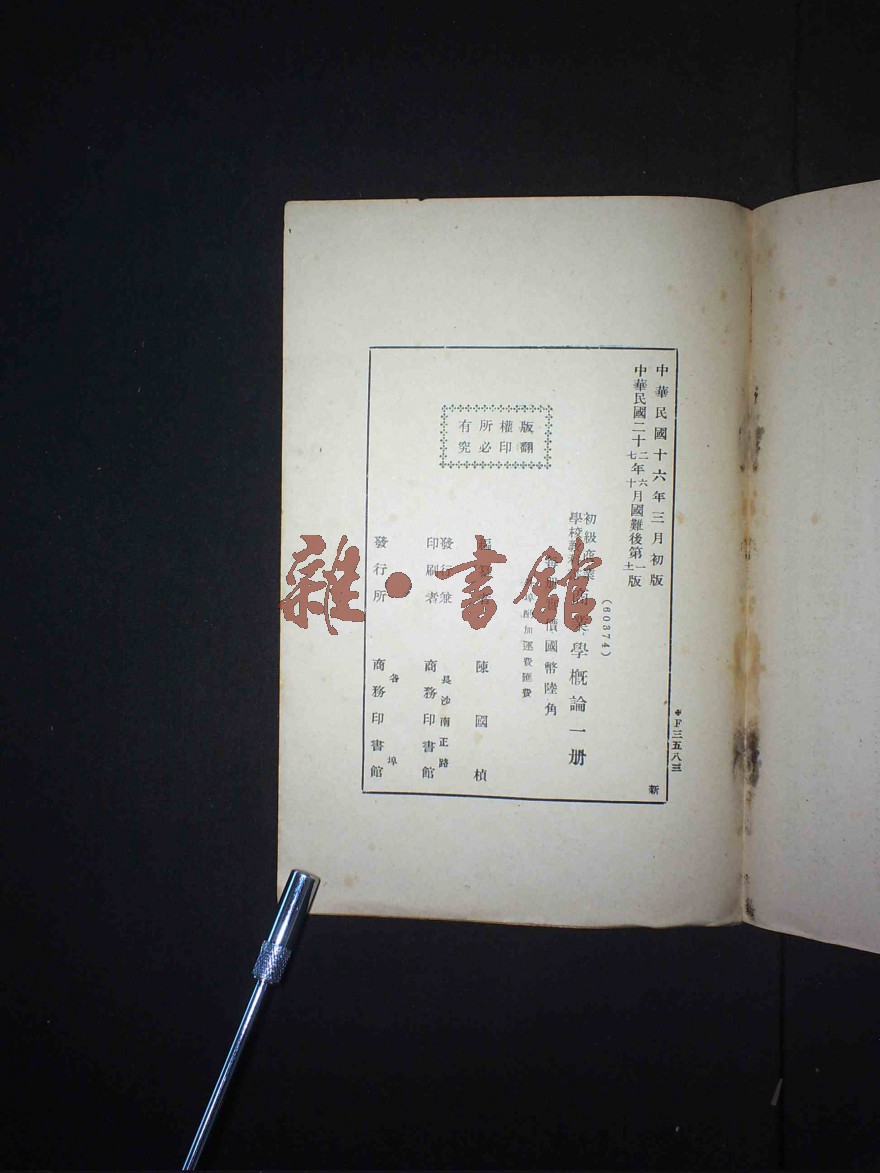 中華民國十六年三月初版
中華民國二十二年六月國難後第一版
七 十 十一
版權所有
翻印必究
(60374)
初級商業
學校
商業學概論一册
價國幣陸角
埠酌加運費匯費
陳國楨
發行兼
印刷者
長沙南正路
商務印書館
發行所
各埠
商務印書館
*F三五八三
新
雜·書館